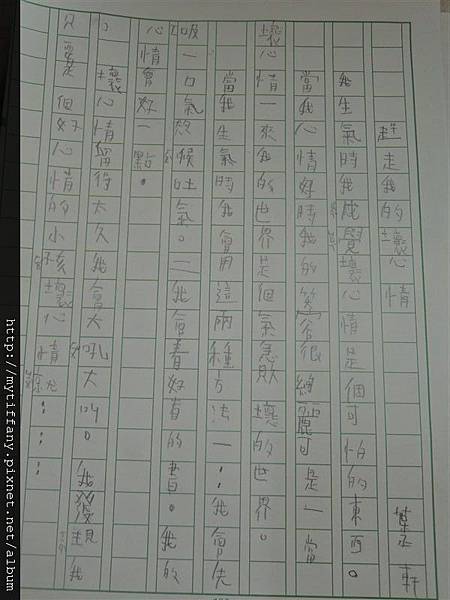 趕走我的壞心情 葉丞軒
我生氣時我感覺壞心情是個可怕的東西。
當我心情好時我的笑容很 麗可是一當
壞心情一來我的世界是個氣急敗壞的世界。
當我生氣時我會用這兩種方法一:我會先
吸一口氣然候吐氣。二我會看好看的書。我的
心情會好一點。
壞心情留得太久我會大吼大叫。我發現我
只要是個好心情的小孩壞心情
http://mytiffany.pixnet.net/album